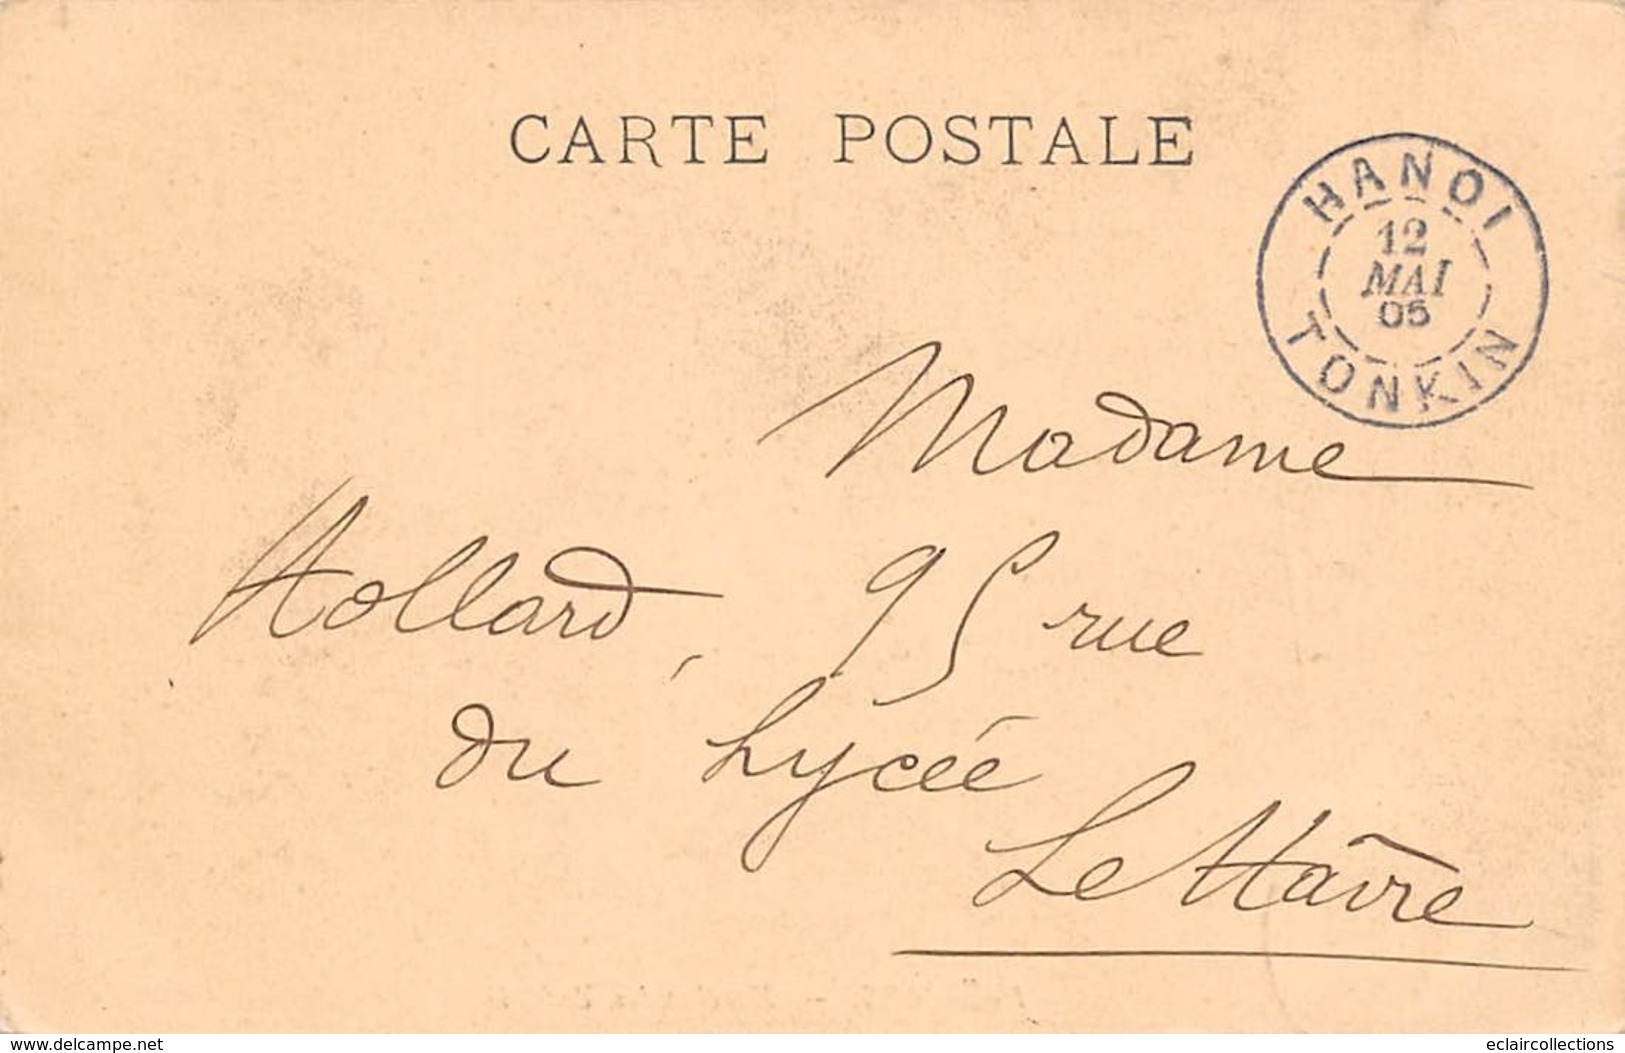 CARTE POSTALE
HANOI
12
MAI
05
TONKIN
Madame
Hollard, 95 rue
du Lycée
Le Hâvre
www.delcampe.net
eclaircollections